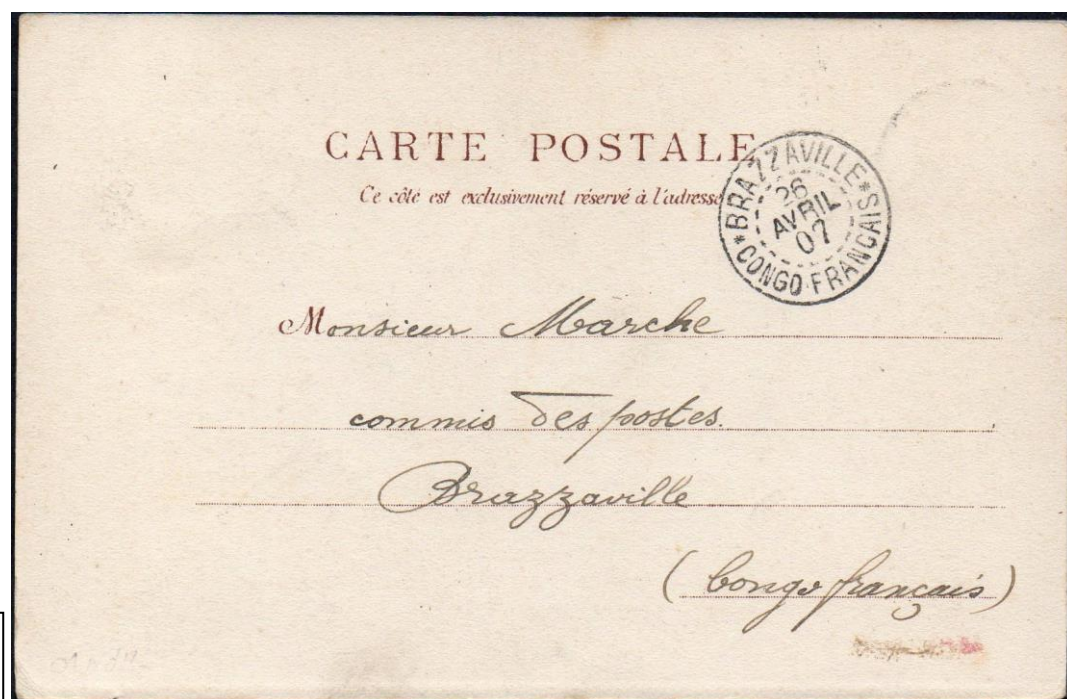 CARTE POSTALE
Ce côté est exclusivement réservé à l'adresse
*BRAZZAVILLE*
CONGO FRANÇAIS
26
AVRIL
07
Monsieur Marche
commis des postes.
Brazzaville
(Congo français)